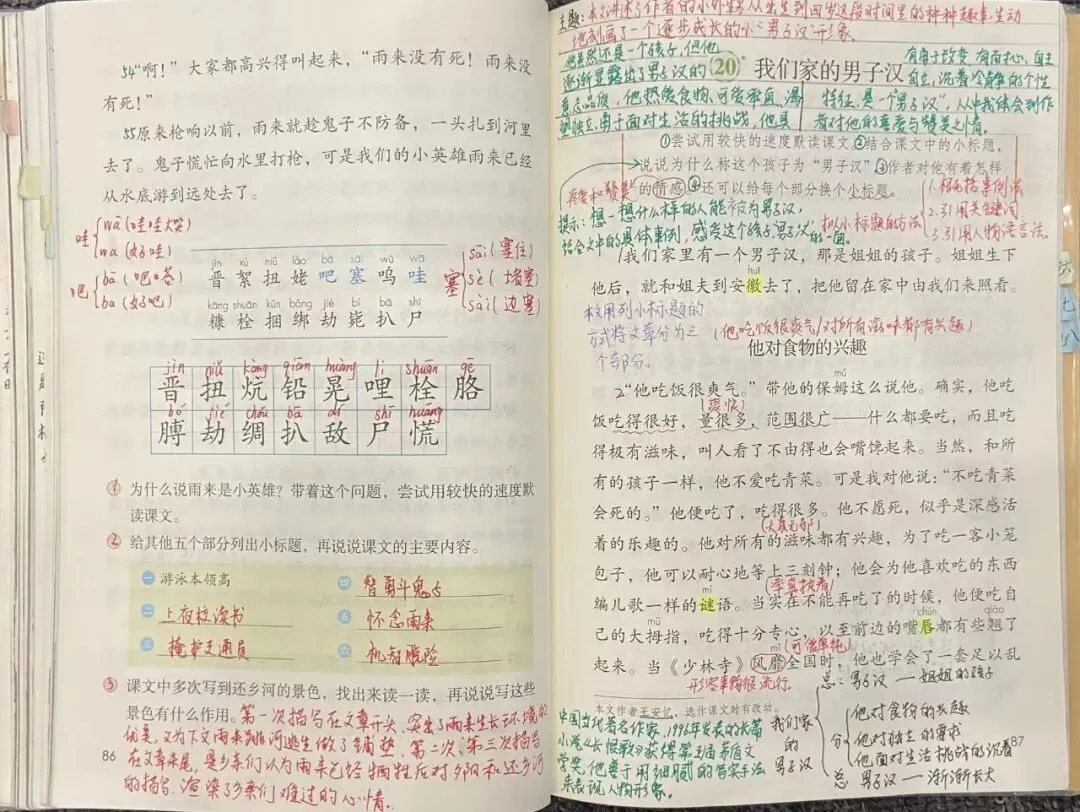 54“啊！”大家都高兴得叫起来，“雨来没有死！雨来没
有死！”
55原来枪响以前，雨来就趁鬼子不防备，一头扎到河里
去了。鬼子慌忙向水里打枪，可是我们的小英雄雨来已经
从水底游到远处去了。
哇
wā（哇哇大哭）
wa（好哇）
吧
bā（吧嗒）
ba（好吧）
jìn xù niǔ lǎo bā sāi wū wā
晋 絮 扭 姥 吧 塞 呜 哇
kāng shuān kǔn bǎng jié bì bā shī
糠 栓 捆 绑 劫 毙 扒 尸
塞
sāi（塞住）
sè（堵塞）
sài（边塞）
jìn niǔ kàng qiān huàng li shuān gē
晋 扭 炕 铅 晃 哩 栓 胳
bó jié chóu bā dí shī huāng
膊 劫 绸 扒 敌 尸 慌
① 为什么说雨来是小英雄？带着这个问题，尝试用较快的速度默
读课文。
② 给其他五个部分列出小标题，再说说课文的主要内容。
一 游泳本领高
二 上夜校读书
三 掩护交通员
四 智勇斗鬼子
五 怀念雨来
六 机智脱险
③ 课文中多次写到还乡河的景色，找出来读一读，再说说写这些
景色有什么作用。第一次描写在文章开头，突出了雨来生长环境的
优美，又为下文雨来跳河逃生做了铺垫，第二次、第三次描写
在文章末尾，是乡亲们认为雨来已经牺牲后对夕阳和还乡河
的描写，渲染了乡亲们难过的心情。
86
主题：本文讲述了作者的小外甥从出生到四岁这段时间里的种种趣事，生动
地刻画了一个逐步成长的小“男子汉”形象。
他虽然还是一个孩子，但他
逐渐显露出了男子汉的
意志品质，他热爱食物、可爱率直、渴
望独立、勇于面对生活的挑战，他具
有勇于改变、有而担心、自主
自立、沉着冷静的个性
特征，是一个“男子汉”，从中我体会到作
者对他的喜爱与赞美之情。
20* 我们家的男子汉
①尝试用较快的速度默读课文。②结合课文中的小标题，
说说为什么称这个孩子为“男子汉”，③作者对他有着怎样
的情感。④还可以给每个部分换个小标题。
喜爱和赞美
提示：想一想什么样的人能被称为男子汉，
结合文中的具体事例，感受这个孩子“男子汉”的一面。
拟小标题的方法
1.概括事例法
2.引用关键词
3.引用人物语言法。
1我们家里有一个男子汉，那是姐姐的孩子。姐姐生下
huī
他后，就和姐夫到安徽去了，把他留在家中由我们来照看。
本文用列小标题的
方式将文章分为三
个部分。
（他吃饭很爽气/对所有滋味都有兴趣）
他对食物的兴趣
mǔ
2“他吃饭很爽气。”带他的保姆这么说他。确实，他吃
（爽快）
饭吃得很好，量很多，范围很广——什么都要吃，而且吃
得极有滋味，叫人看了不由得也会嘴馋起来。当然，和所
有的孩子一样，他不爱吃青菜。可是我对他说：“不吃青菜
会死的。”他便吃了，吃得很多。他不愿死，似乎是深感活
（天真无邪）
着的乐趣的。他对所有的滋味都有兴趣，为了吃一客小笼
包子，他可以耐心地等上三刻钟；他会为他喜欢吃的东西
（率真执着）
mí
编儿歌一样的谜语。当实在不能再吃了的时候，他便吃自
mǔ chún qiáo
己的大拇指，吃得十分专心，以至前边的嘴唇都有些翘了
mǐ（可爱单纯）
起来。当《少林寺》风靡全国时，他也学会了一套足以乱
形容事物很流行。
本文作者王安忆，选作课文时有改动。
中国当代著名作家，1996年发表的长篇
小说《长恨歌》获得第五届茅盾文
学奖，他善于用细腻的写实手法
来表现人物形象。
我们家
的
男子汉
总：男子汉——姐姐的孩子
分
他对食物的兴趣
他对独立的要求
他面对生活挑战的沉着
总 男子汉——渐渐长大
87
六
七
八